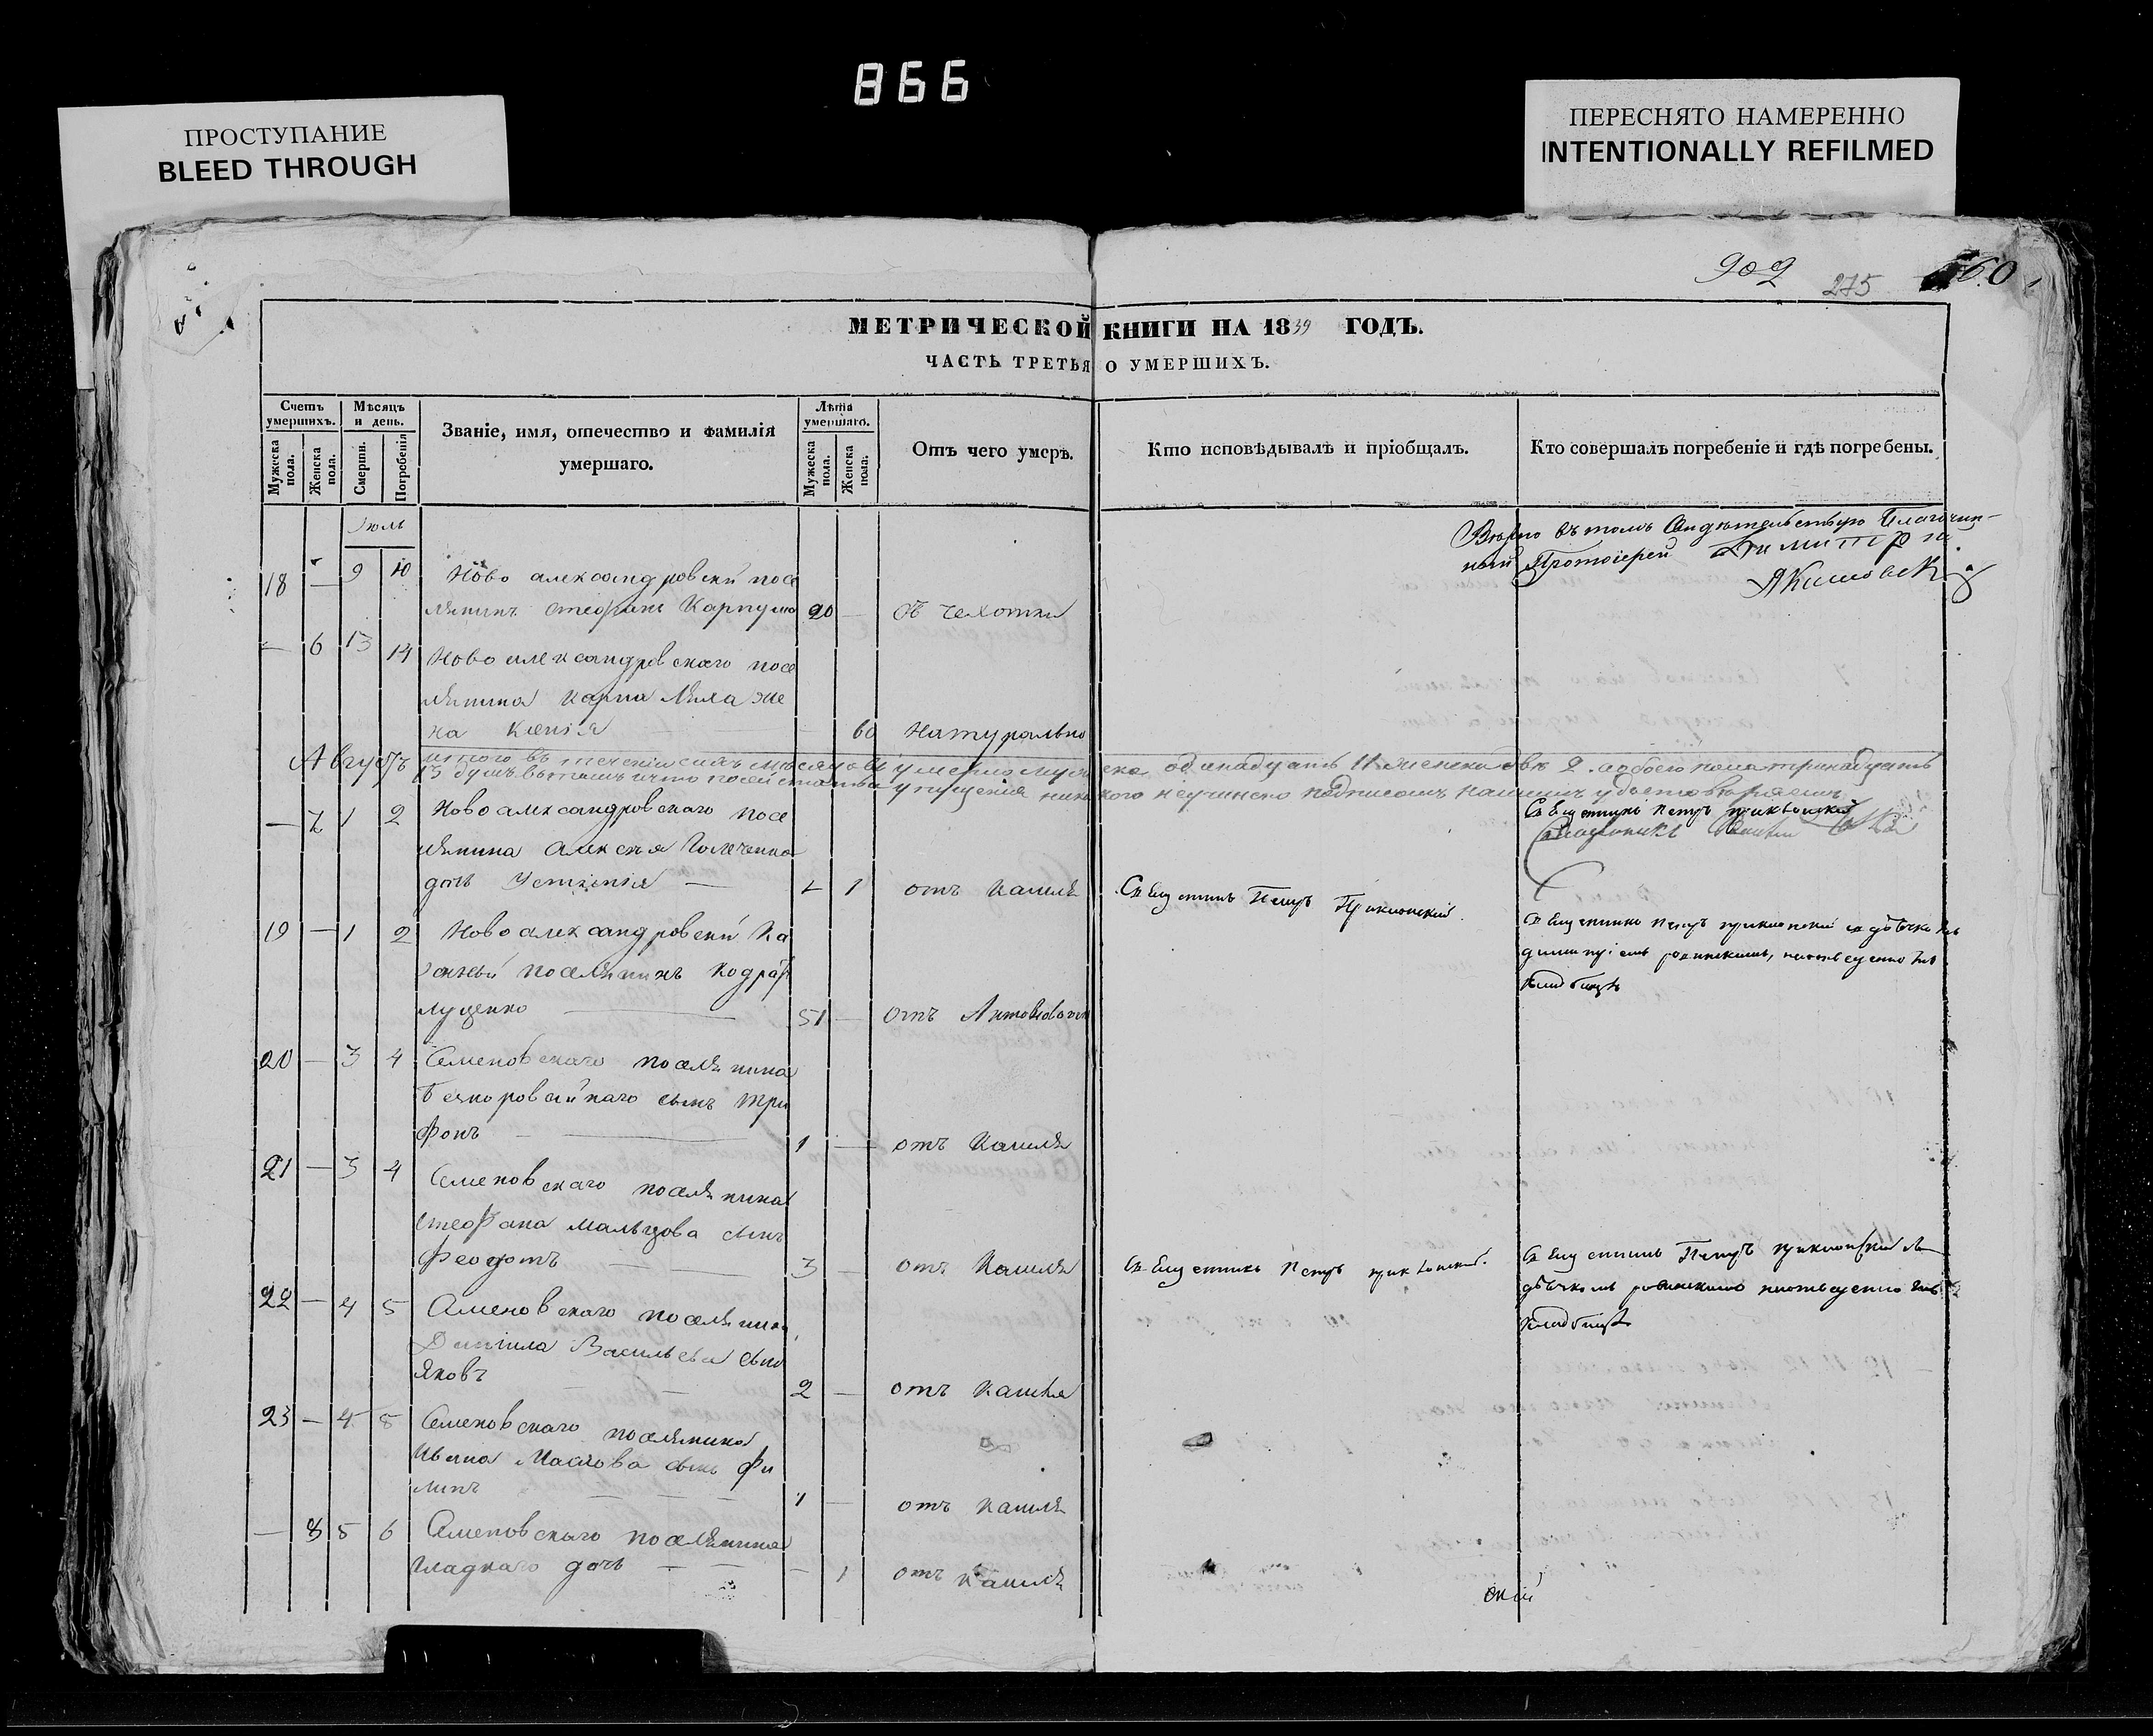 866
ПРОСТУПАНИЕ
BLEED THROUGH
ПЕРЕСНЯТО НАМЕРЕННО
INTENTIONALLY REFILMED
902
275
МЕТРИЧЕСКОЙ КНИГИ НА 1839 ГОДЪ.
ЧАСТЬ ТРЕТЬЯ О УМЕРШИХЪ.
Счетъ умершихъ.
Мужеска пола.
Женска пола.
Мѣсяцъ и день.
Смерти.
Погребенія
Званіе, имя, отечество и фамилія умершаго.
Лѣта умершаго.
Мужеска пола.
Женска пола.
Отъ чего умеръ.
Кто исповѣдывалъ и пріобщалъ.
Кто совершалъ погребеніе и гдѣ погребены.
Вѣрно въ томъ Свидѣтельствую Благочин-
ный Протоіерей Димитрій
Якишовскій
Іюль
18 — 9 10 Ново александровскій посе
лянинъ Стефанъ 20 — Отъ чехотки
— 6 13 14 Ново александровскаго посе
лянина Карпа Ляха же
на Ксенія 60 Натурально
Августъ
итого въ теченіи сихъ мѣсяцовъ умерло мужеска одинадцать 11 женска двѣ 2. а обоего пола тринадцать
13 душъ въ томъ и что посей статьи упущенія никакого неучинено подписомъ нашимъ удостовѣряемъ
Священникъ Петръ
— 7 1 2 Ново александровскаго посе
лянина Алексѣя
дочь Устинія — 1 отъ Кашля
Священникъ Петръ
19 — 1 2 Ново александровскій Ка
зенный поселянинъ Кодратъ
Луценко 51 — отъ
Священникъ Петръ
кладбищѣ
20 — 3 4 Семеновскаго поселянина
сынъ Три
фонъ 1 — отъ Кашля
21 — 3 4 Семеновскаго поселянина
Стефана Мальцова сынъ
Феодотъ 3 — отъ Кашля
Священникъ Петръ
Священникъ Петръ
кладбищѣ
22 — 4 5 Семеновскаго поселянина
Даніила Васильева сынъ
Яковъ 2 — отъ кашля
23 — 4 5 Семеновскаго поселянина
Ивана Маслова сынъ Фи
липъ 1 — отъ кашля
— 8 5 6 Семеновскаго поселянина
Гладкаго дочь — 1 отъ кашля